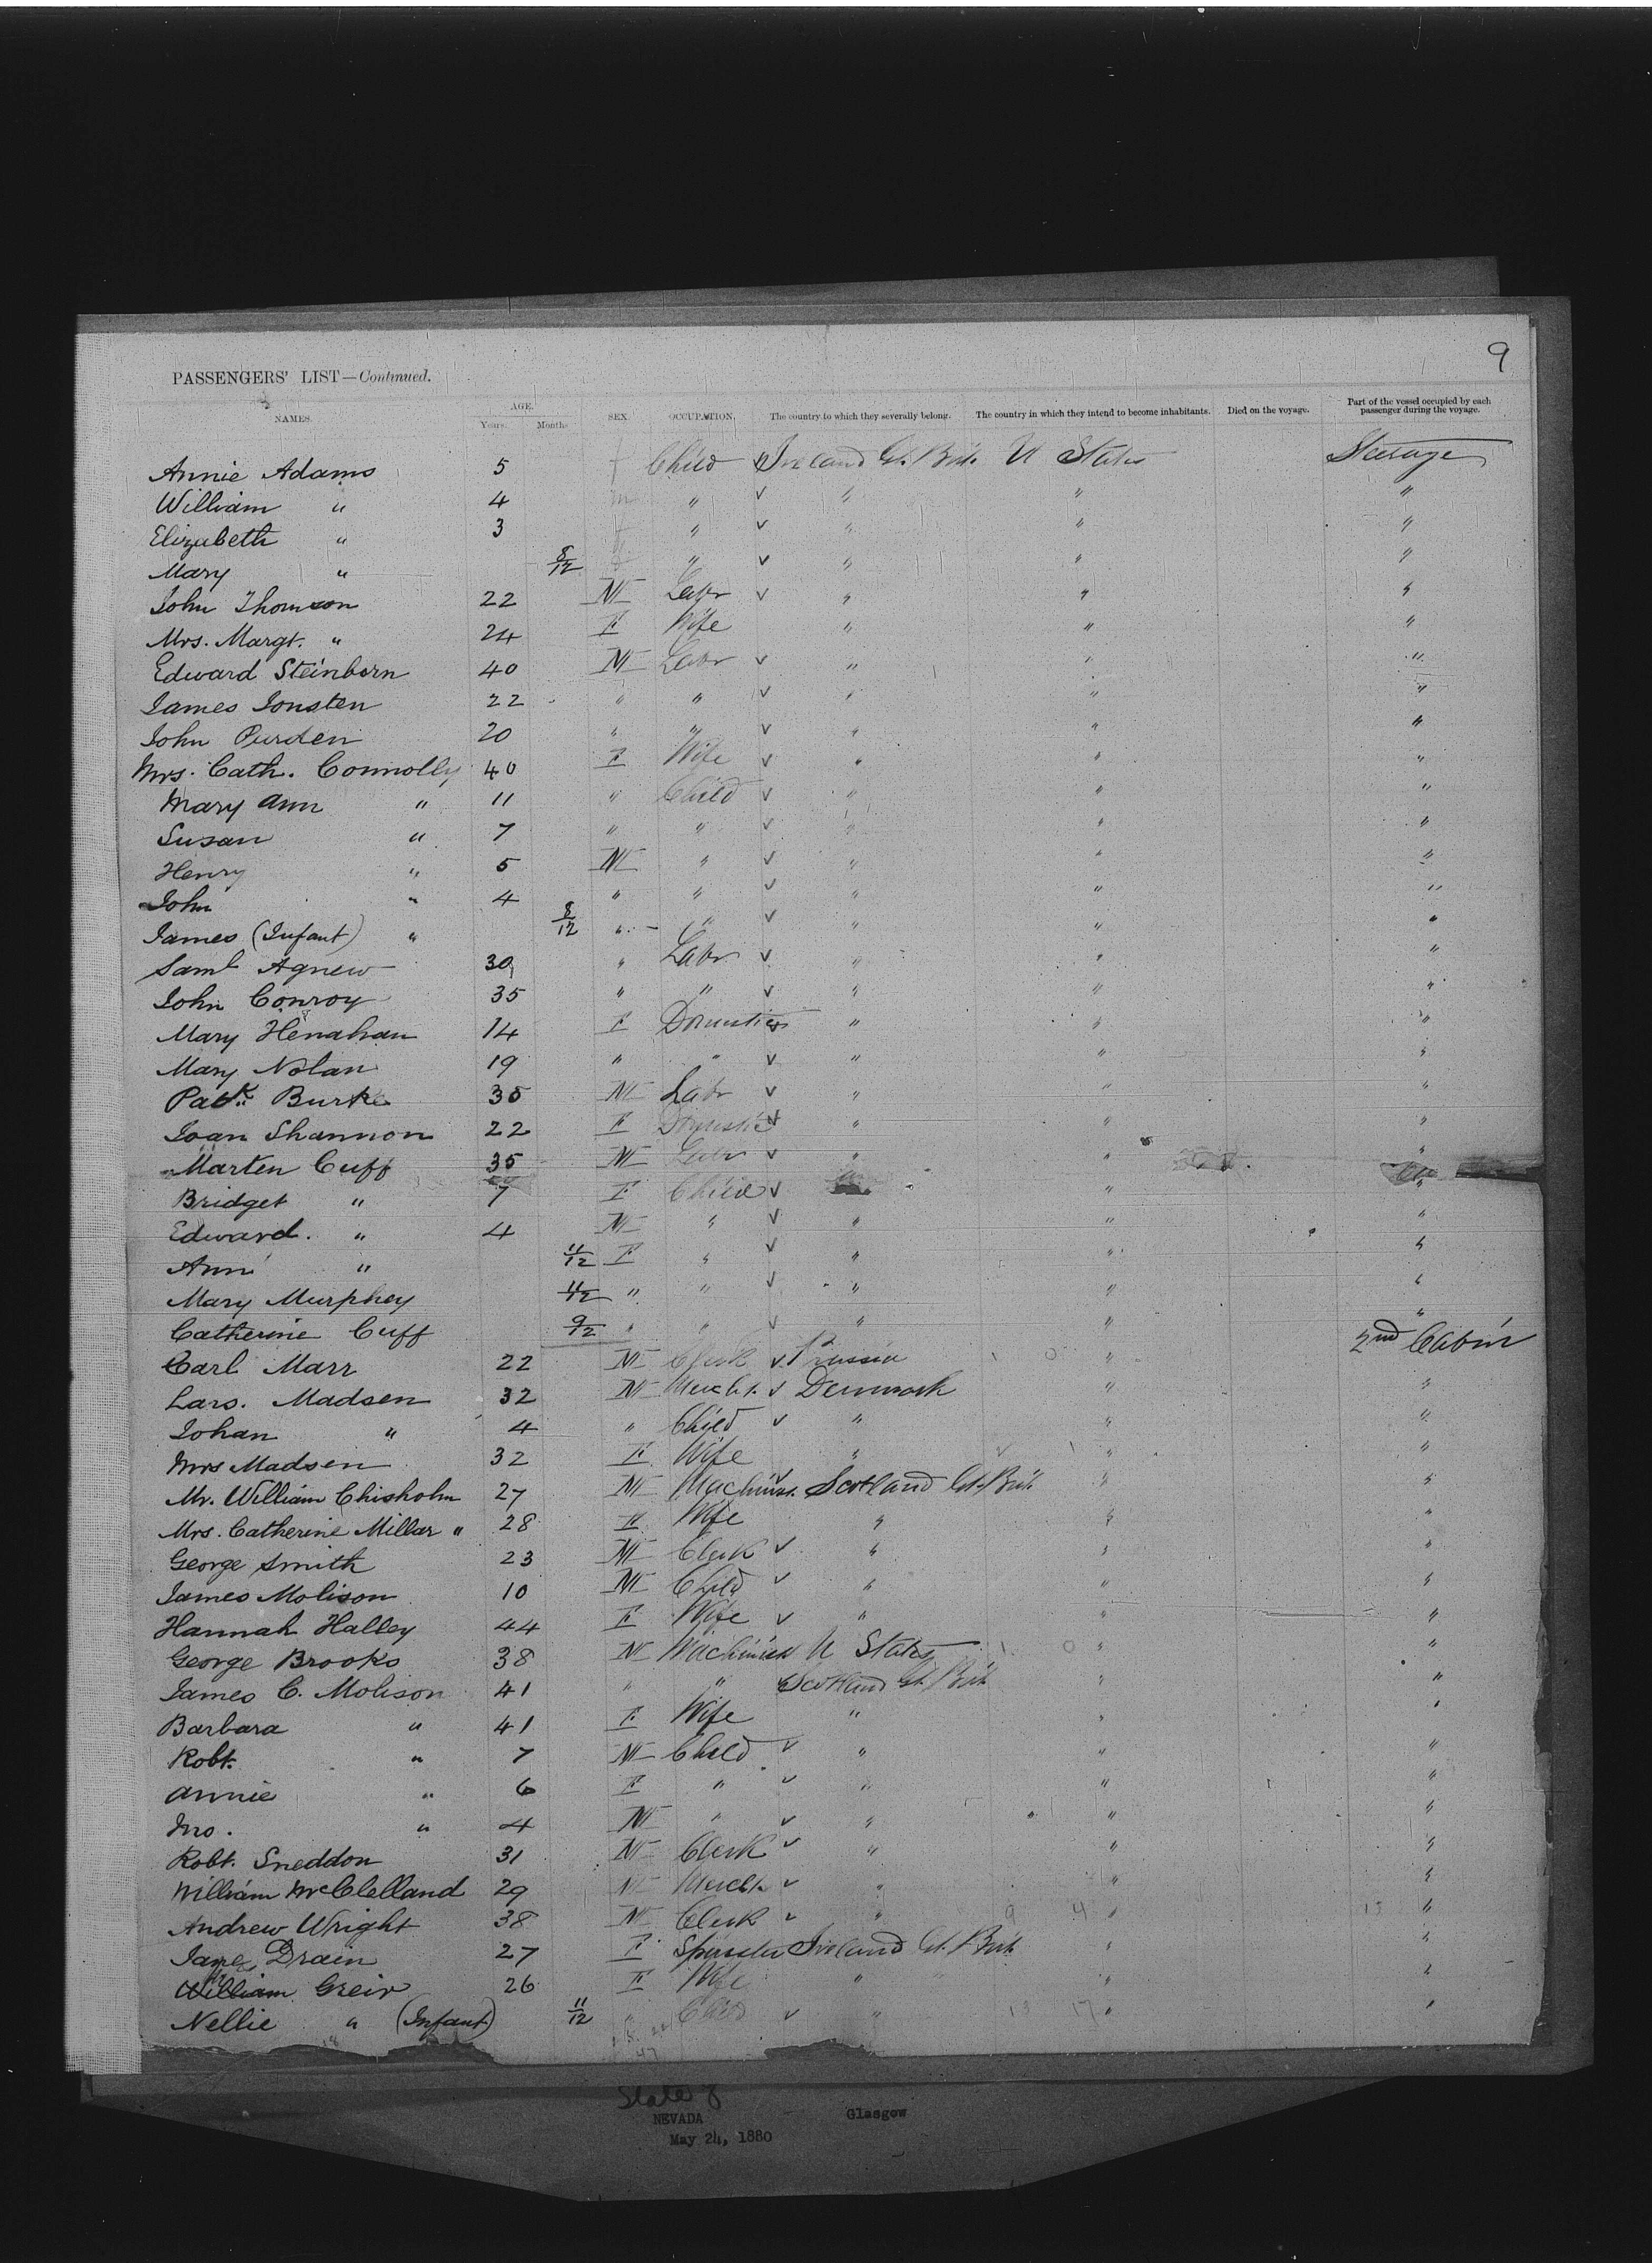 9
PASSENGERS' LIST—Continued.
NAMES. AGE. Years. Months SEX. OCCUPATION. The country to which they severally belong. The country in which they intend to become inhabitants. Died on the voyage. Part of the vessel occupied by each passenger during the voyage.
Annie Adams 5 f Child Ireland Gt. Brit. U States Steerage
William " 4 m " " " "
Elizabeth " 3 f " " " "
Mary " 8/12 f " " " "
John Thomson 22 M Labr " " "
Mrs. Margt. " 24 F Wife " " "
Edward Steinborn 40 M Labr " " "
James Jonsten 22 " " " " "
John Purden 20 " " " " "
Mrs. Cath. Connolly 40 F Wife " " "
Mary Ann " 11 " Child " " "
Susan " 7 " " " " "
Henry " 5 M " " " "
John " 4 " " " " "
James (Infant) " 8/12 " " " " "
Saml Agnew 30 " Labr " " "
John Conroy 35 " " " " "
Mary Henahan 14 F Domestic " " "
Mary Nolan 19 " " " " "
Patk. Burke 35 M Labr " " "
Joan Shannon 22 F Domestic " " "
Marten Cuff 35 M Labr " " "
Bridget " 7 F Child " "
Edward. " 4 M " " " "
Ann " 11/12 F " " " "
Mary Murphey 11/12 " " " " "
Catherine Cuff 9/12 " " " " "
Carl Marr 22 M Clerk Prussia " 2nd Cabin
Lars. Madsen 32 M Mercht. Denmark " "
Johan " 4 " Child " " "
Mrs Madsen 32 F Wife " " "
Mr. William Chisholm 27 M Machinst. Scotland Gt. Brit. " "
Mrs. Catherine Millar " 28 F Wife " " "
George Smith 23 M Clerk " " "
James Molison 10 M Child " " "
Hannah Halley 44 F Wife " " "
George Brooks 38 M Machinist U States " "
James C. Molison 41 " " Scotland Gt. Brit. " "
Barbara " 41 F Wife " " "
Robt. " 7 M Child " " "
Annie " 6 F " " " "
Jno. " 4 M " " " "
Robt. Sneddon 31 M Clerk " " "
William McClelland 29 M Mercht. " " "
Andrew Wright 38 M Clerk " 9 4 " 13 "
Jane Drain 27 F Spinster Ireland Gt. Brit. " "
William Greir 26 F Wife " " "
Nellie " (Infant) 11/12 " Child " 13 17 " "
State of
NEVADA Glasgow
May 24, 1880